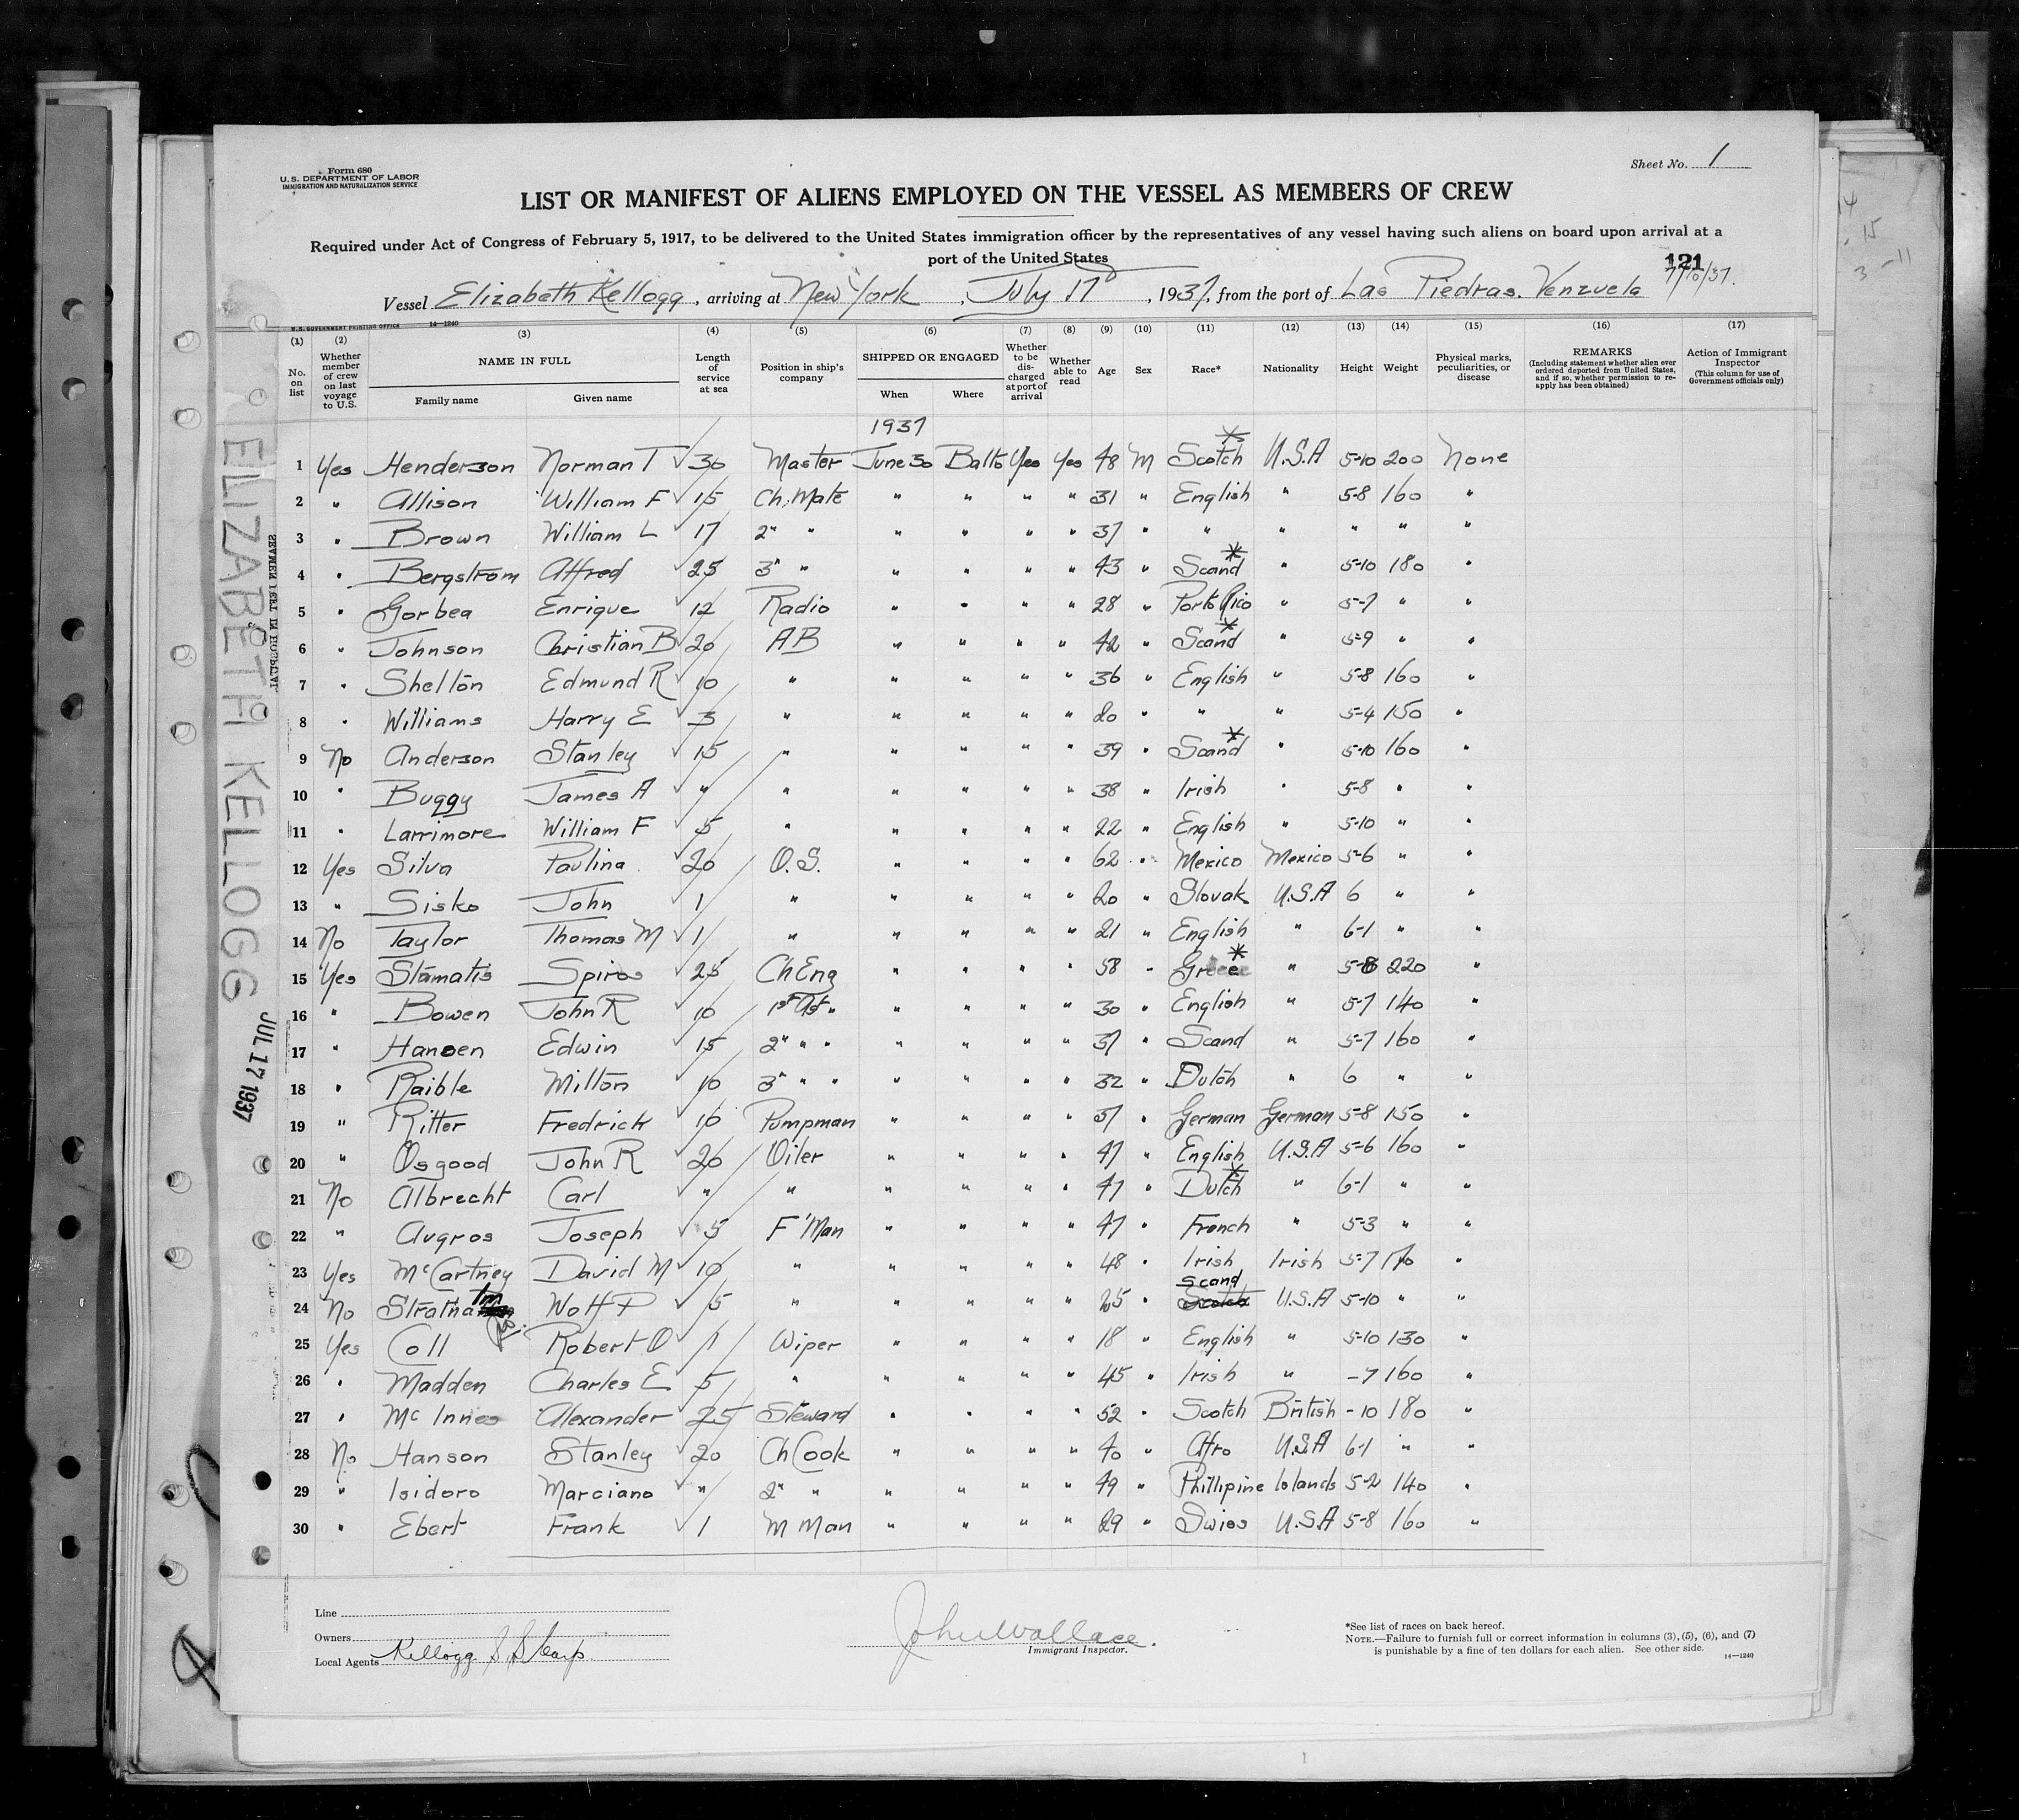 Form 680
U.S. DEPARTMENT OF LABOR
IMMIGRATION AND NATURALIZATION SERVICE
Sheet No. 1
LIST OR MANIFEST OF ALIENS EMPLOYED ON THE VESSEL AS MEMBERS OF CREW
Required under Act of Congress of February 5, 1917, to be delivered to the United States immigration officer by the representatives of any vessel having such aliens on board upon arrival at a
port of the United States
121
7/10/37.
Vessel Elizabeth Kellogg, arriving at New York, July 17, 1937, from the port of Las Piedras. Venzuela
U.S. GOVERNMENT PRINTING OFFICE 14—1240
(1) (2) (3) (4) (5) (6) (7) (8) (9) (10) (11) (12) (13) (14) (15) (16) (17)
No. on list
Whether member of crew on last voyage to U.S.
NAME IN FULL
Family name Given name
Length of service at sea
Position in ship's company
SHIPPED OR ENGAGED
When Where
Whether to be discharged at port of arrival
Whether able to read
Age
Sex
Race*
Nationality
Height
Weight
Physical marks, peculiarities, or disease
REMARKS
(Including statement whether alien ever ordered deported from United States, and if so, whether permission to reapply has been obtained)
Action of Immigrant Inspector
(This column for use of Government officials only)
1937
1 Yes Henderson Norman T √ 30 Master June 30 Balto Yes Yes 48 M Scotch U.S.A 5-10 200 None
2 " Allison William F √ 15 Ch. Mate " " " " 31 " English " 5-8 160 "
3 " Brown William L √ 17 2" " " " " " 37 " " " " " "
4 " Bergstrom Alfred √ 25 3" " " " " " 43 " Scand " 5-10 180 "
5 " Gorbea Enrique √ 12 Radio " " " " 28 " Porto Rico " 5-7 " "
6 " Johnson Christian B √ 20 AB " " " " 42 " Scand " 5-9 " "
7 " Shelton Edmund R √ 10 " " " " " 36 " English " 5-8 160 "
8 " Williams Harry E √ 3 " " " " " 20 " " " 5-4 150 "
9 No Anderson Stanley √ 15 " " " " " 39 " Scand " 5-10 160 "
10 " Buggy James A √ " " " " " " 38 " Irish " 5-8 " "
11 " Larrimore William F √ 5 " " " " " 22 " English " 5-10 " "
12 Yes Silva Paulina √ 20 O.S. " " " " 62 " Mexico Mexico 5-6 " "
13 " Sisko John √ 1 " " " " " 20 " Slovak U.S.A 6 " "
14 No Taylor Thomas M √ 1 " " " " " 21 " English " 6-1 " "
15 Yes Stamatis Spiros √ 25 Ch Eng " " " " 58 " Greece " 5-8 220 "
16 " Bowen John R √ 10 1st Ast " " " " " 30 " English " 5-7 140 "
17 " Hansen Edwin √ 15 2" " " " " " " 37 " Scand " 5-7 160 "
18 " Raible Milton √ 10 3" " " " " " " 32 " Dutch " 6 " "
19 " Ritter Fredrick √ 10 Pumpman " " " " 37 " German German 5-8 150 "
20 " Osgood John R √ 20 Oiler " " " " 47 " English U.S.A 5-6 160 "
21 No Albrecht Carl √ " " " " " " 47 " Dutch " 6-1 " "
22 " Augros Joseph √ 5 F'Man " " " " 47 " French " 5-3 " "
23 Yes McCartney David M √ 10 " " " " " 48 " Irish Irish 5-7 170 "
24 No Wolf P √ 5 " " " " " 25 " Scand U.S.A 5-10 " "
25 Yes Coll Robert O √ 1 Wiper " " " " 18 " English " 5-10 130 "
26 " Madden Charles E √ 5 " " " " " 45 " Irish " -7 160 "
27 " Mc Innes Alexander √ 25 Steward " " " " 52 " Scotch British -10 180 "
28 No Hanson Stanley √ 20 Ch Cook " " " " 40 " Afro U.S.A 6-1 " "
29 " Isidoro Marciano √ " 2" " " " " " 49 " Phillipine Islands 5-2 140 "
30 " Ebert Frank √ 1 M Man " " " " 29 " Swiss U.S.A 5-8 160 "
ELIZABETH KELLOGG
JUL 17 1937
SEAMEN LEFT IN HOSPITAL
Line
Owners
Local Agents Kellogg S S Corp.
John Wallace.
Immigrant Inspector.
*See list of races on back hereof.
NOTE.—Failure to furnish full or correct information in columns (3), (5), (6), and (7)
is punishable by a fine of ten dollars for each alien. See other side.
14—1240